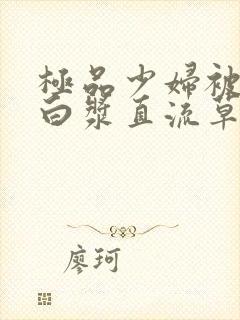 極品少婦被
白漿直流草
廖珂